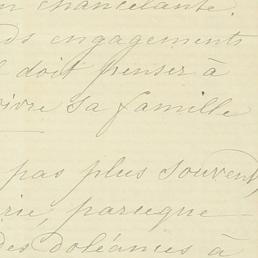 n chancelante.
ds engagements
l doit penser à
vivre sa famille
pas plus souvent,
rie, parceque
des doléances à